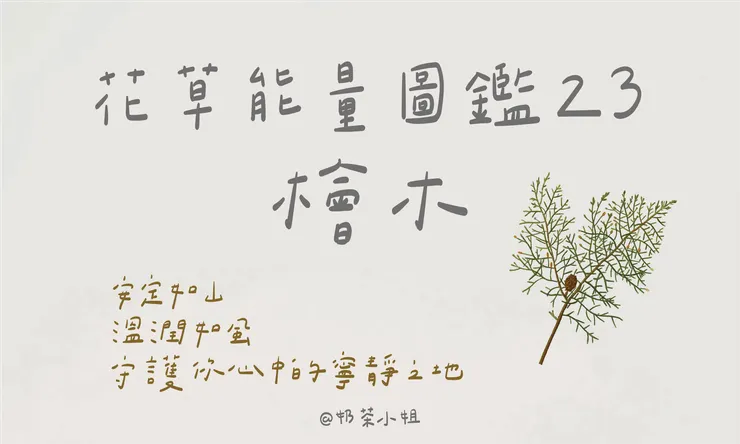 花草能量圖鑑23
檜木
安定如山
溫潤如風
守護你心中的寧靜之地
@奶茶小姐